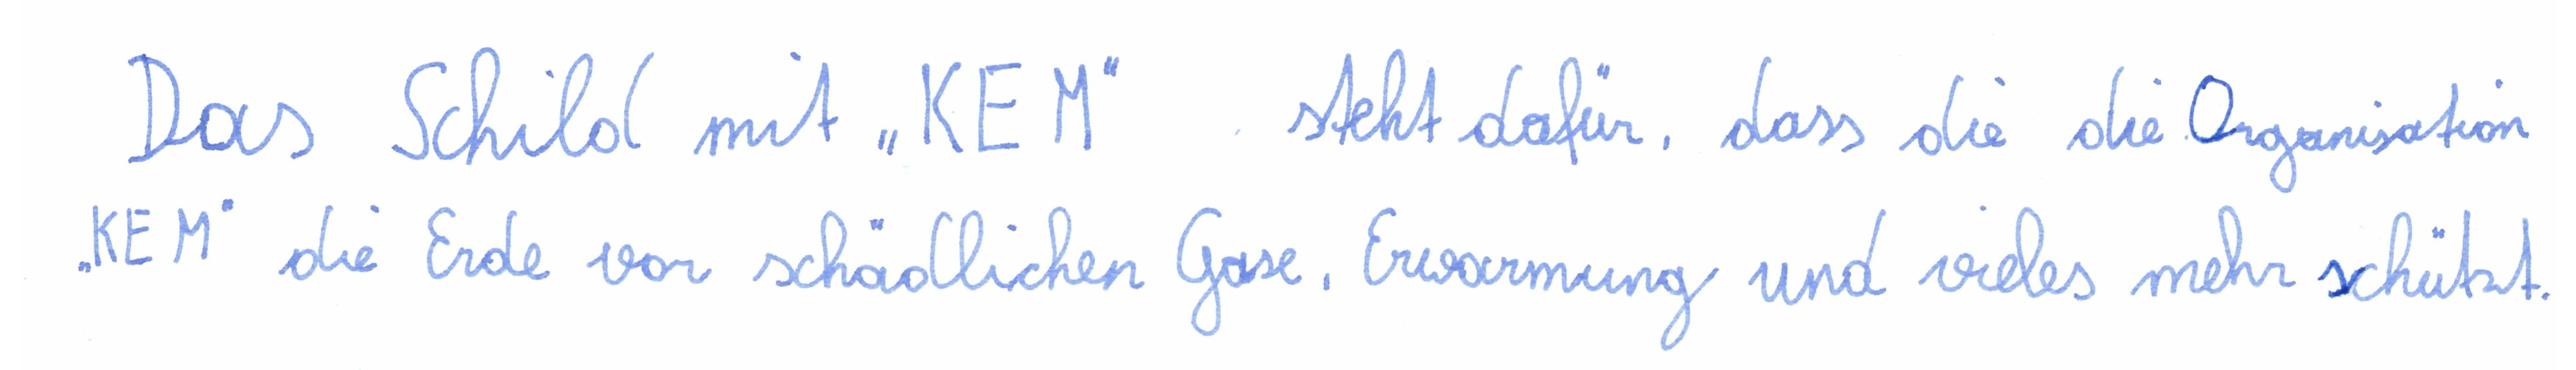 Das Schild mit „KEM" steht dafür, dass die die Organisation
„KEM" die Erde vor schädlichen Gase, Erwarmung und vieles mehr schützt.